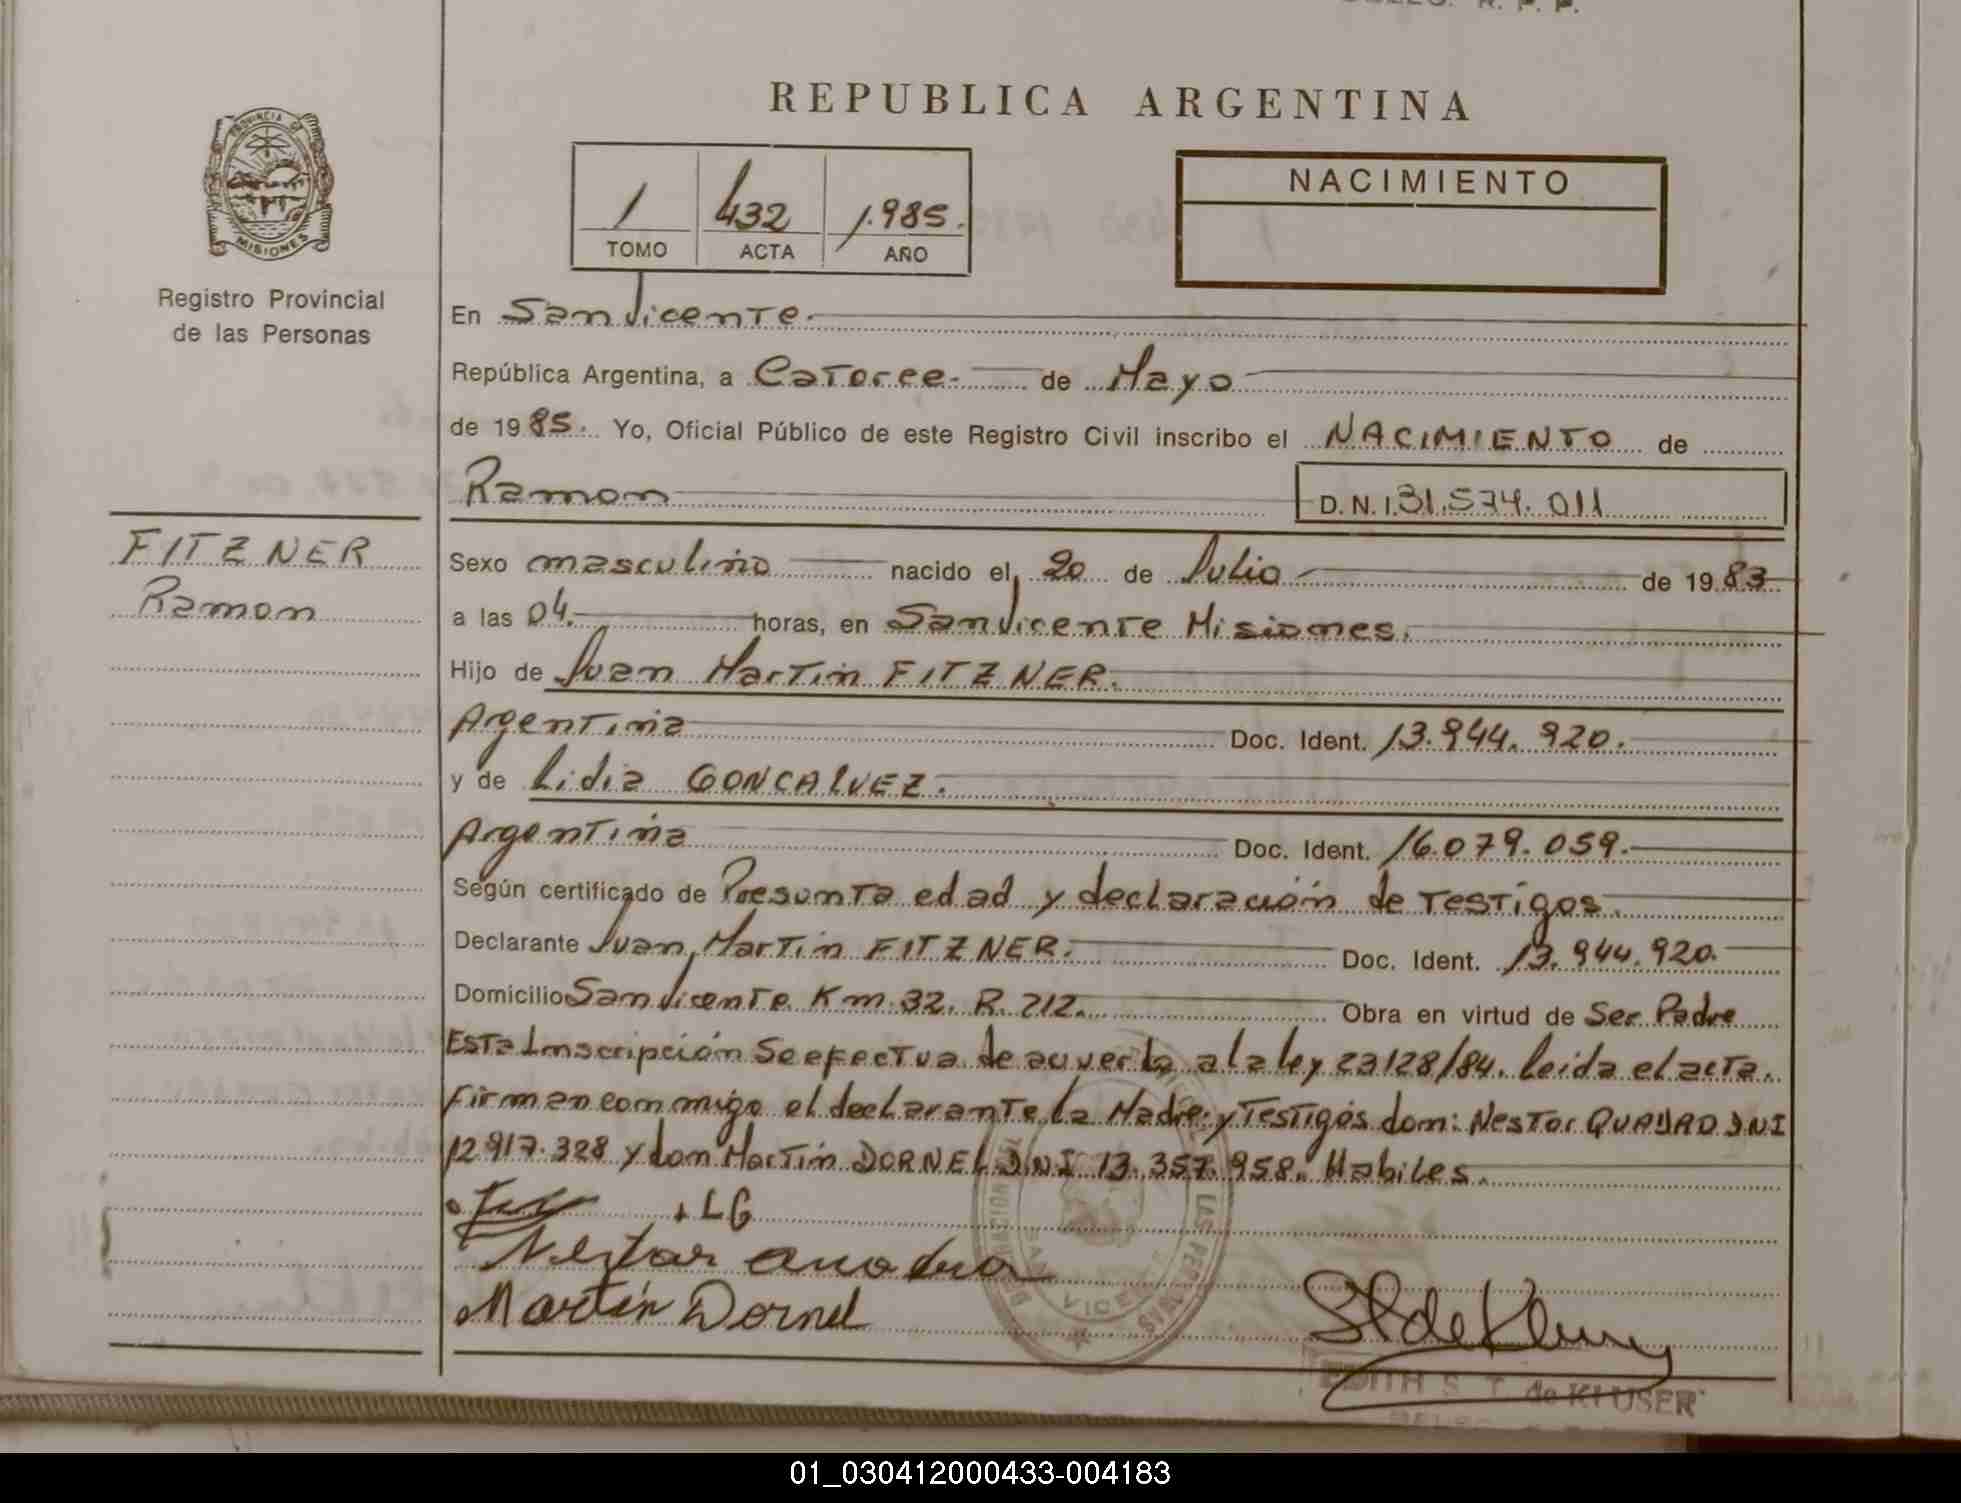 REPUBLICA ARGENTINA
PROVINCIA DE
MISIONES
Registro Provincial
de las Personas
1 432 1.985.
TOMO ACTA AÑO
NACIMIENTO
En San Vicente.
República Argentina, a Catorce. de Mayo
de 1985. Yo, Oficial Público de este Registro Civil inscribo el NACIMIENTO de
Ramon D.N.I. 31.574.011
FITZNER
Ramon
Sexo masculino nacido el 20 de Julio de 1983
a las 04. horas, en San Vicente Misiones.
Hijo de Juan Martin FITZNER.
Argentina Doc. Ident. 13.944.920.
y de Lidia GONCALVEZ.
Argentina Doc. Ident. 16.079.059.
Según certificado de Presunta edad y declaración de testigos.
Declarante Juan Martin FITZNER. Doc. Ident. 13.944.920.
Domicilio San Vicente Km. 32. R. 212. Obra en virtud de Ser Padre
Esta Inscripción Se efectua de acuerdo a la ley 23128/84. leida el acta.
Firman conmigo el declarante la Madre y Testigos don: Nestor QUADRO DNI
12.917.328 y don Martin DORNEL DNI 13.357.958. Habiles.
+ LG
Martín Dornel
SAN VICENTE
EDITH S. T. de KLUSER
01_030412000433-004183